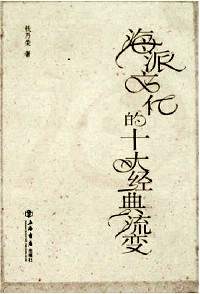 钱乃荣 著
海派文化
的十大经典流变
上海书店出版社